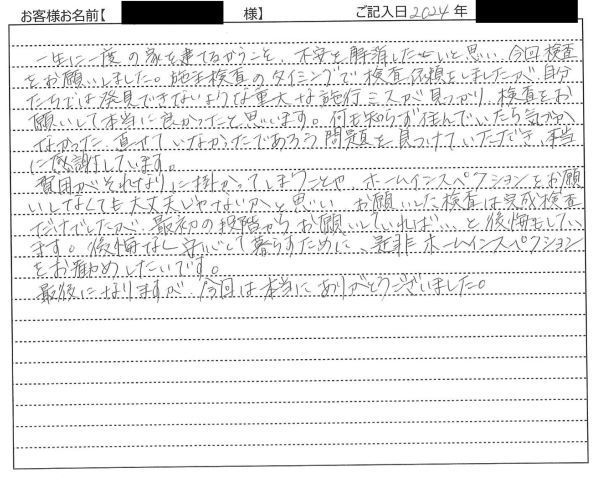 お客様お名前【 様】 ご記入日2024年
一生に一度の家を建てるからこそ、不安を解消したいと思い 今回検査
をお願いしました。施主検査のタイミングで検査依頼をしましたが、自分
たちでは発見できないような重大な施行ミスが見つかり、検査をお
願いして本当に良かったと思います。何も知らず住んでいたら気づか
なかった、直せていなかったであろう問題を見つけていただき、本当
に感謝しています。
費用がそれなりに掛かってしまうことや、ホームインスペクションをお願
いしなくても大丈夫じゃないか、と思い お願いした検査は完成検査
だけでしたが、最初の段階からお願いしていれば…と後悔もしてい
ます。後悔なく安心して暮らすために、是非ホームインスペクション
をお勧めしたいです。
最後になりますが、今回は本当にありがとうございました。